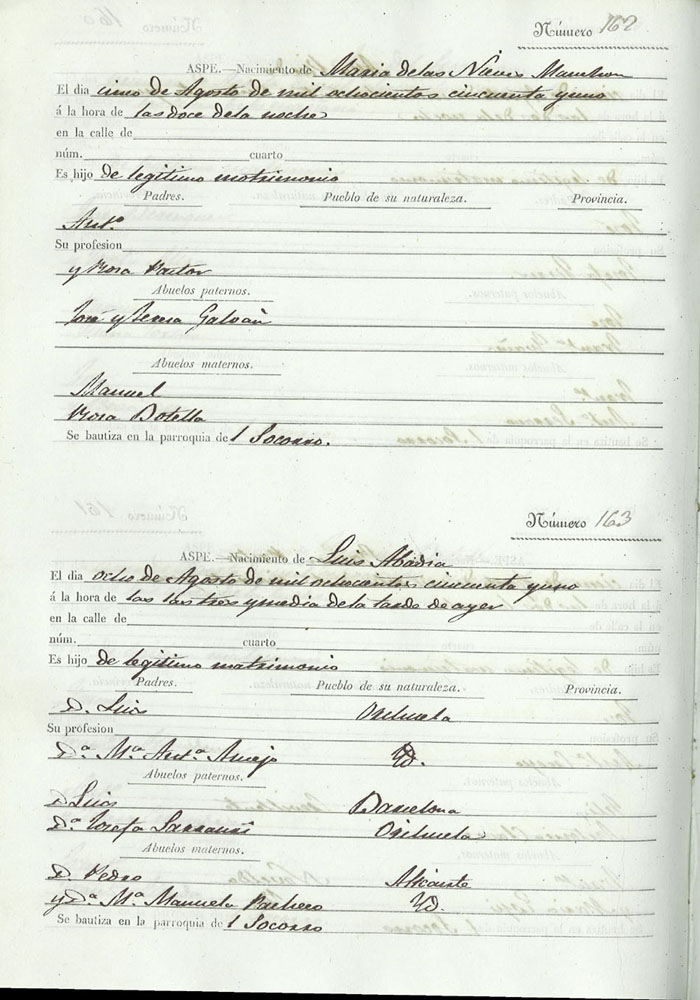 Número 162
ASPE.—Nacimiento de Maria delas Nieves
El dia cinco de Agosto de mil ochocientos cincuenta yuno
á la hora de las doce dela noche
en la calle de
núm. cuarto
Es hijo de legitimo matrimonio
Padres. Pueblo de su naturaleza. Provincia.
Ant.º
Su profesion
y Rosa Pastor
Abuelos paternos.
José y Teresa Galvañ
Abuelos maternos.
Manuel
Rosa Botella
Se bautiza en la parroquia de l Socorro.
Número 163
ASPE.—Nacimiento de Luis Abadia
El dia ocho de Agosto de mil ochocientos cincuenta yuno
á la hora de las las tres ymedia dela tarde de ayer
en la calle de
núm. cuarto
Es hijo de legitimo matrimonio
Padres. Pueblo de su naturaleza. Provincia.
D. Luis Orihuela
Su profesion
D.ª M.ª Ant.ª Id.
Abuelos paternos.
D. Luis Barcelona
D.ª Josefa Orihuela
Abuelos maternos.
D. Pedro Alicante
y D.ª M.ª Manuela Pacheco Id.
Se bautiza en la parroquia de l Socorro